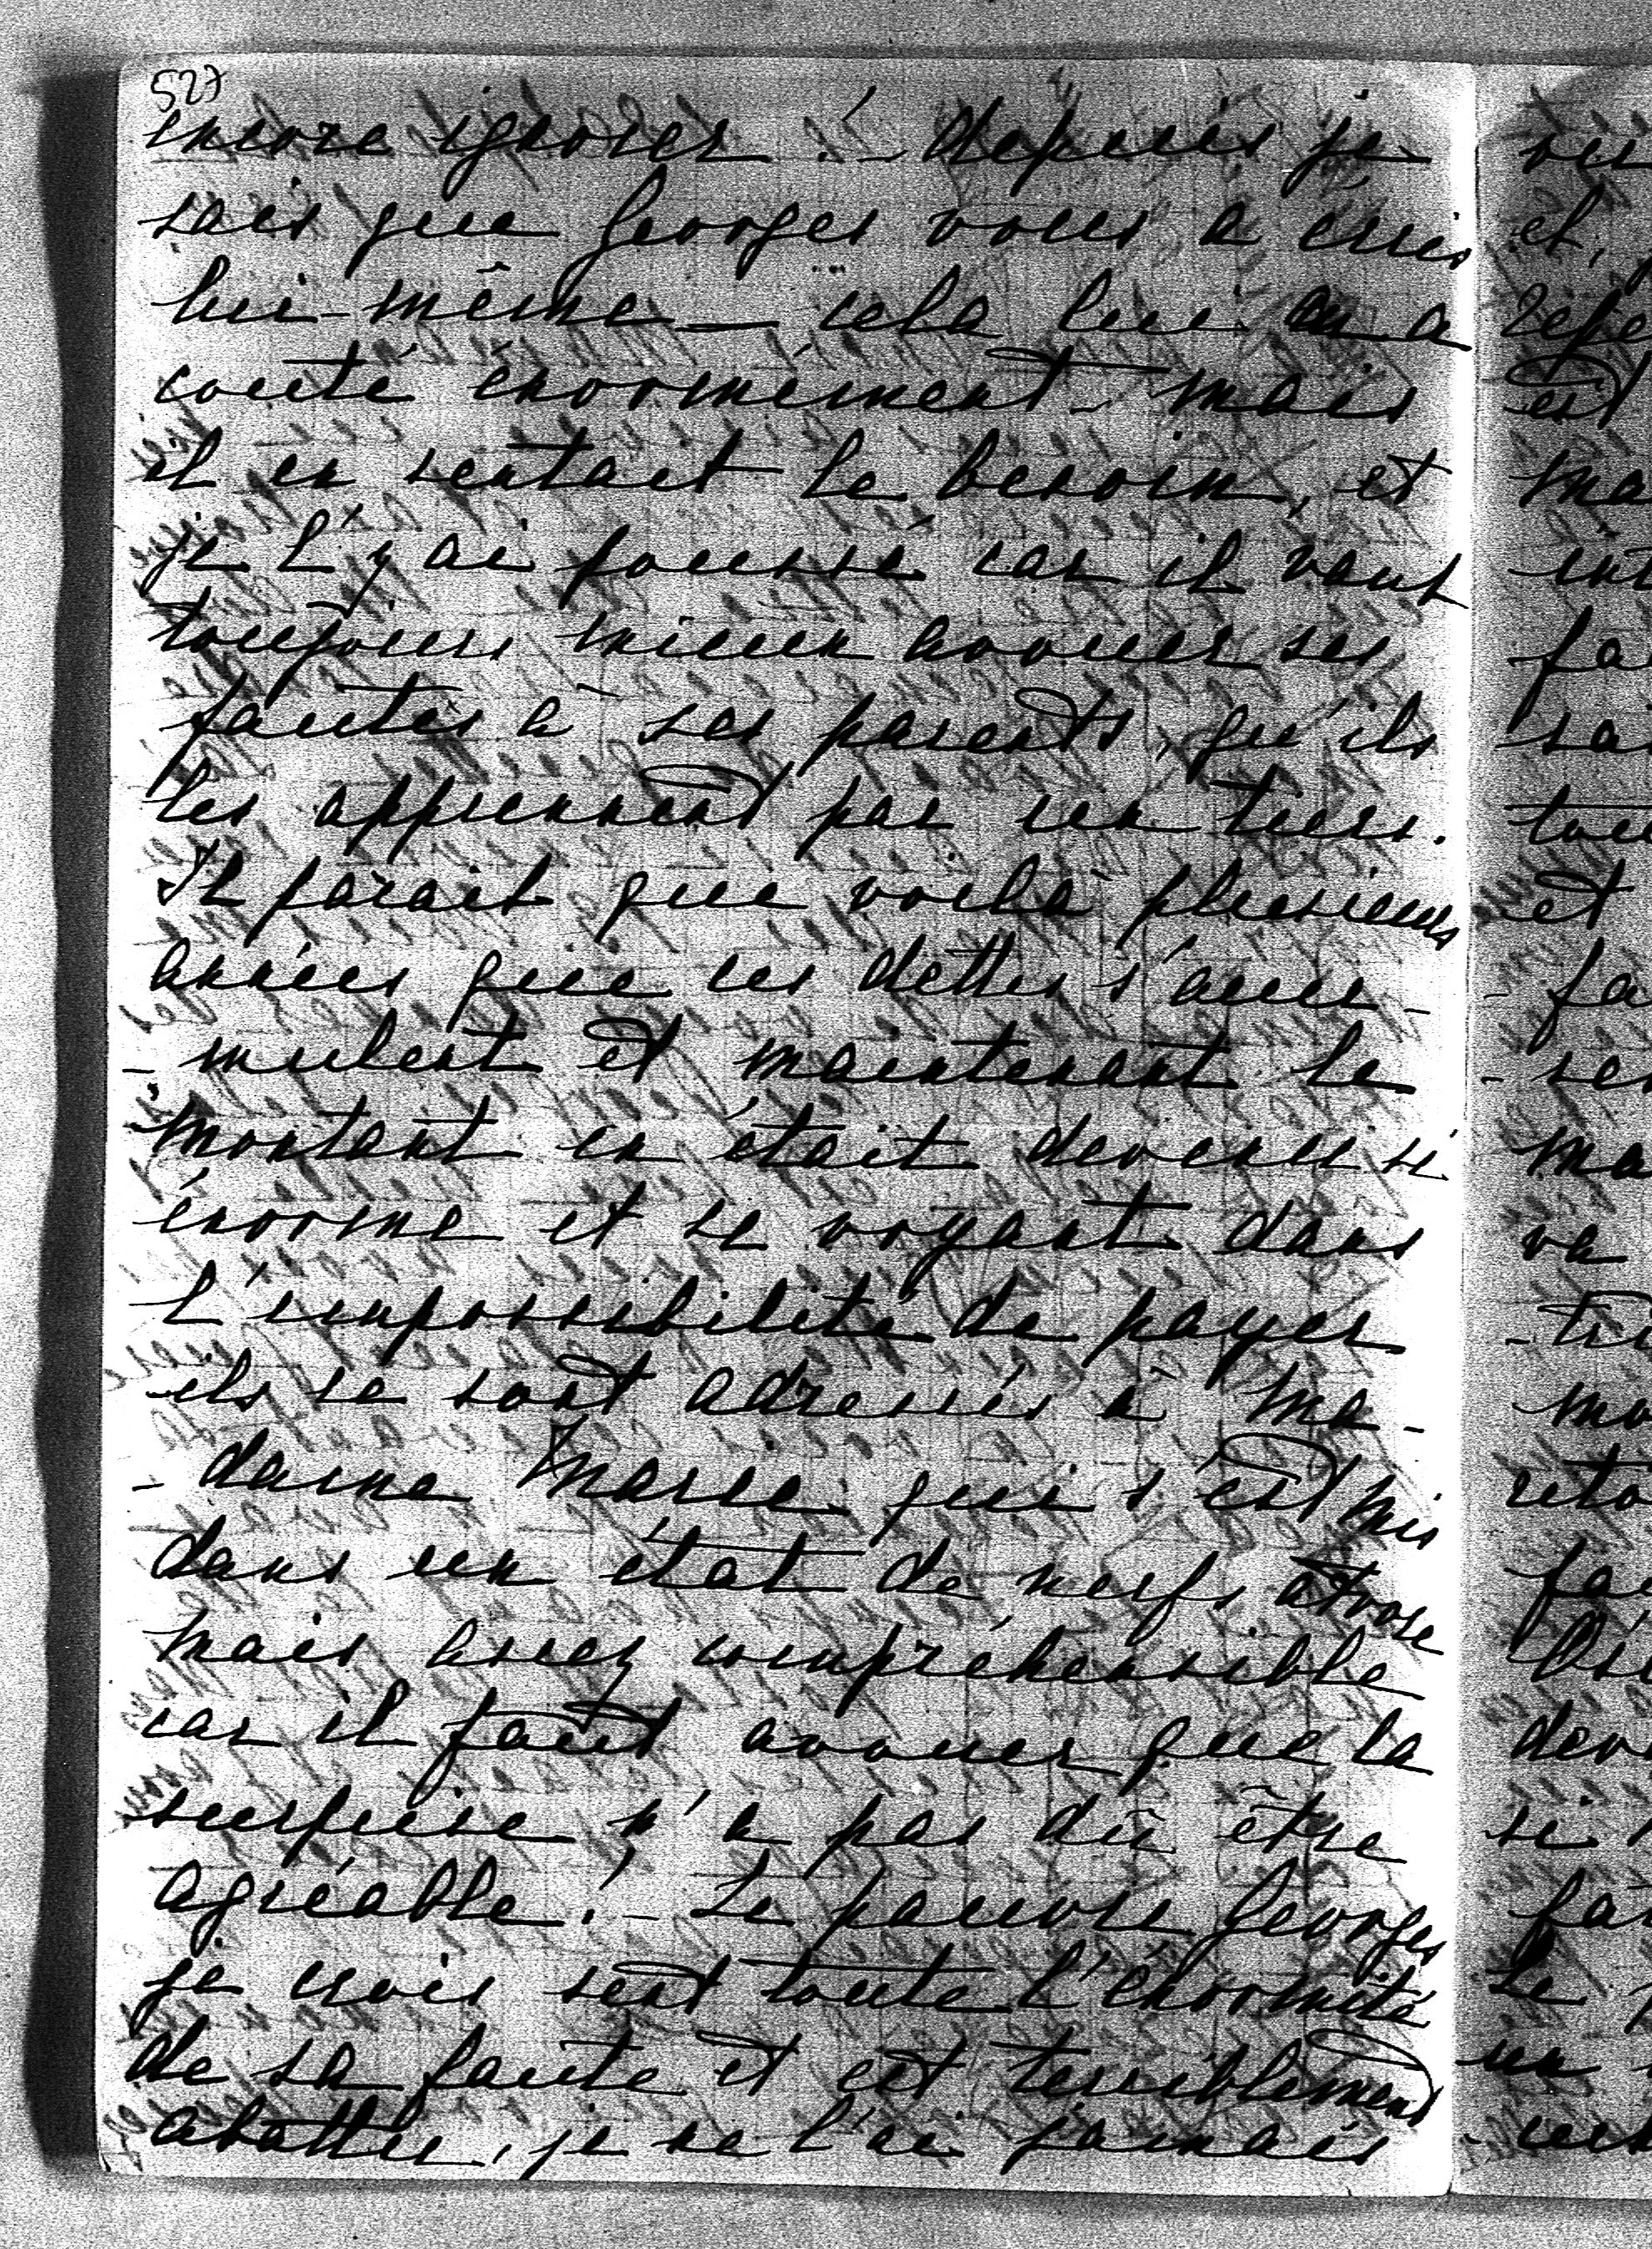 527
encore ignorer !_ depuis je
sais que Georges vous a écris
lui-même _ cela lui en a
couté énormément _ mais
il en sentait le besoin, et
je l'y ai poussé car il vaut
toujours mieux avouer ses
fautes à ses parents, qu'ils
les apprennent par un tiers.
Il parait que voilà plusieurs
années que ces dettes s'accu-
- mulent et maintenant le
montant en était devenu si
énorme et se voyant dans
l'impossibilité de payer
ils se sont adressés à Ma-
- dame Marie qui s'est mis
dans un état de nerfs atroce
mais assez compréhensible
car il faut avouer que la
surprise n'a pas dû être
agréable ! _ Le pauvre Georges
je crois sent toute l'énormité
de sa faute et est terriblement
abattu, je ne l'ai jamais